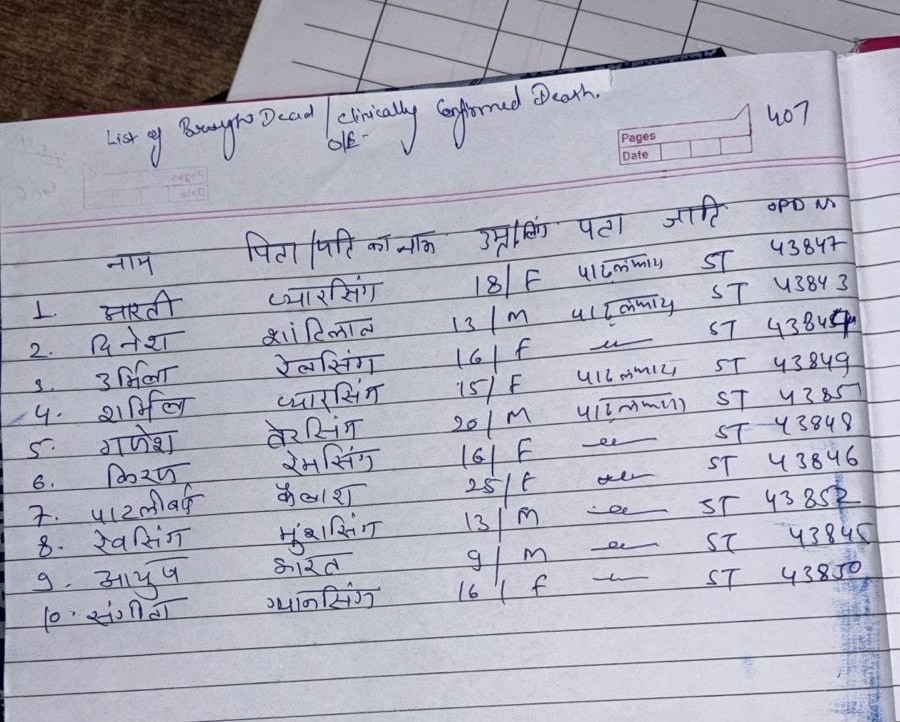 List of Brought Dead / Clinically Confirmed Death.
O/E-
407
Pages
Date
नाम पिता/पति का नाम उम्र/लिंग पता जाति OPD N
1. आरती प्यारसिंग 18/F ST 43847
2. दिनेश शांतिलाल 13/M ST 43843
3. उर्मिला रेलसिंग 16/F -"- ST
4. शर्मिला प्यारसिंग 15/F ST 43849
5. गणेश वेरसिंग 20/M ST 43851
6. किरण रेमसिंग 16/F -"- ST 43848
7. पाटलीबाई कैलाश 25/F -"- ST 43846
8. रेवसिंग मुंशसिंग 13/M -"- ST 43852
9. आयुष भारत 9/M -"- ST 43845
10. संगीता ग्यानसिंग 16/F -"- ST 43850